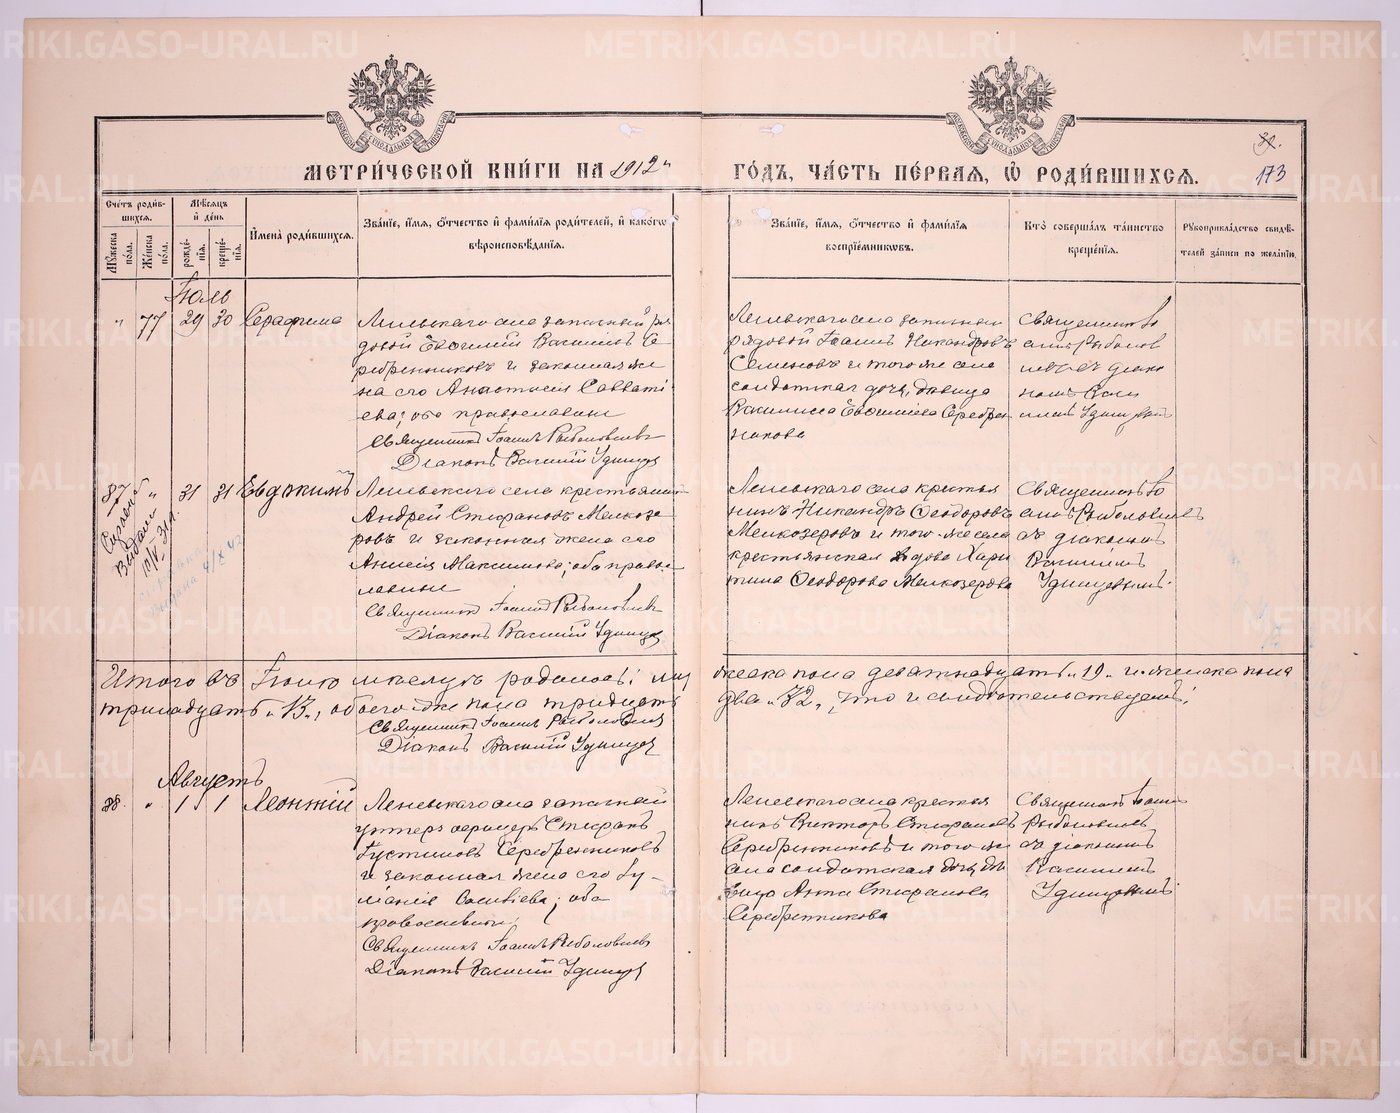 МЕТРИ́ЧЕСКОЙ КНИ́ГИ НА 1912 й
ГО́ДЪ, ЧА́СТЬ ПЕ́РВАЯ, Ѡ҆ РОДИ́ВШИХСѦ.
39.
173
Счетъ родив-
шихся.
Мѣсяцъ
и день
Мужеска
пола.
Женска
пола.
рожде-
нія.
креще-
нія.
Имена родившихся.
Званіе, имя, отчество и фамилія родителей, и какого
вѣроисповѣданія.
Званіе, имя, отчество и фамилія
воспріемниковъ.
Кто совершалъ таинство
крещенія.
Рукоприкладство свидѣ-
телей записи по желанію.
Іюль
" 77 29 30 Серафима
Леневскаго села запасный ря
довой Евфимій Васильевъ Се
ребренниковъ и законная же
на его Анастасія Савваті-
ева; оба православные
Священникъ Іоаннъ Рыболовлевъ
Діаконъ Василій Удинцевъ
Леневскаго села запасный
рядовой Іоаннъ Никандровъ
Семеновъ и того же села
солдатская дочь, девица
Василисса Евфиміева Серебрен
никова
Священникъ Іо
аннъ Рыболов
левъ съ діако
номъ Васи
ліемъ Удинцевымъ
87 " 31 31 Евдокимъ
Леневскаго села крестьянинъ
Андрей Стефановъ Мелкозе
ровъ и законная жена его
Анисія Максимова; оба право
славные
Священникъ Іоаннъ Рыболовлевъ
Діаконъ Василій Удинцевъ
Леневскаго села крестья
нинъ Никандръ Феодоровъ
Мелкозеровъ и того же села
крестьянская вдова Хари
тина Феодорова Мелкозерова
Священникъ Іо
аннъ Рыболовлевъ
съ діакономъ
Василіемъ
Удинцевымъ.
Выдана
4/IX 42
Итого въ Іюлѣ мѣсяцѣ родилось: му
жеска пола девятнадцать "19" и женска пола
тринадцать "13", обоего же пола тридцать
два "32", что и свидѣтельствуемъ:
Священникъ Іоаннъ Рыболовлевъ
Діаконъ Василій Удинцевъ
Августъ
88. " 1 1 Леонтій
Леневскаго села запасный
унтеръ офицеръ Стефанъ
Іустиновъ Серебренниковъ
и законная жена его Іу-
ліанія Савватіева; оба
православные
Священникъ Іоаннъ Рыболовлевъ
Діаконъ Василій Удинцевъ
Леневскаго села крестья
нинъ Викторъ Стефановъ
Серебренниковъ и того же
села солдатская дочь, дѣ
вица Анна Стефанова
Серебренникова
Священникъ Іоаннъ
Рыболовлевъ
съ діакономъ
Василіемъ
Удинцевымъ.
METRIKI.GASO-URAL.RU